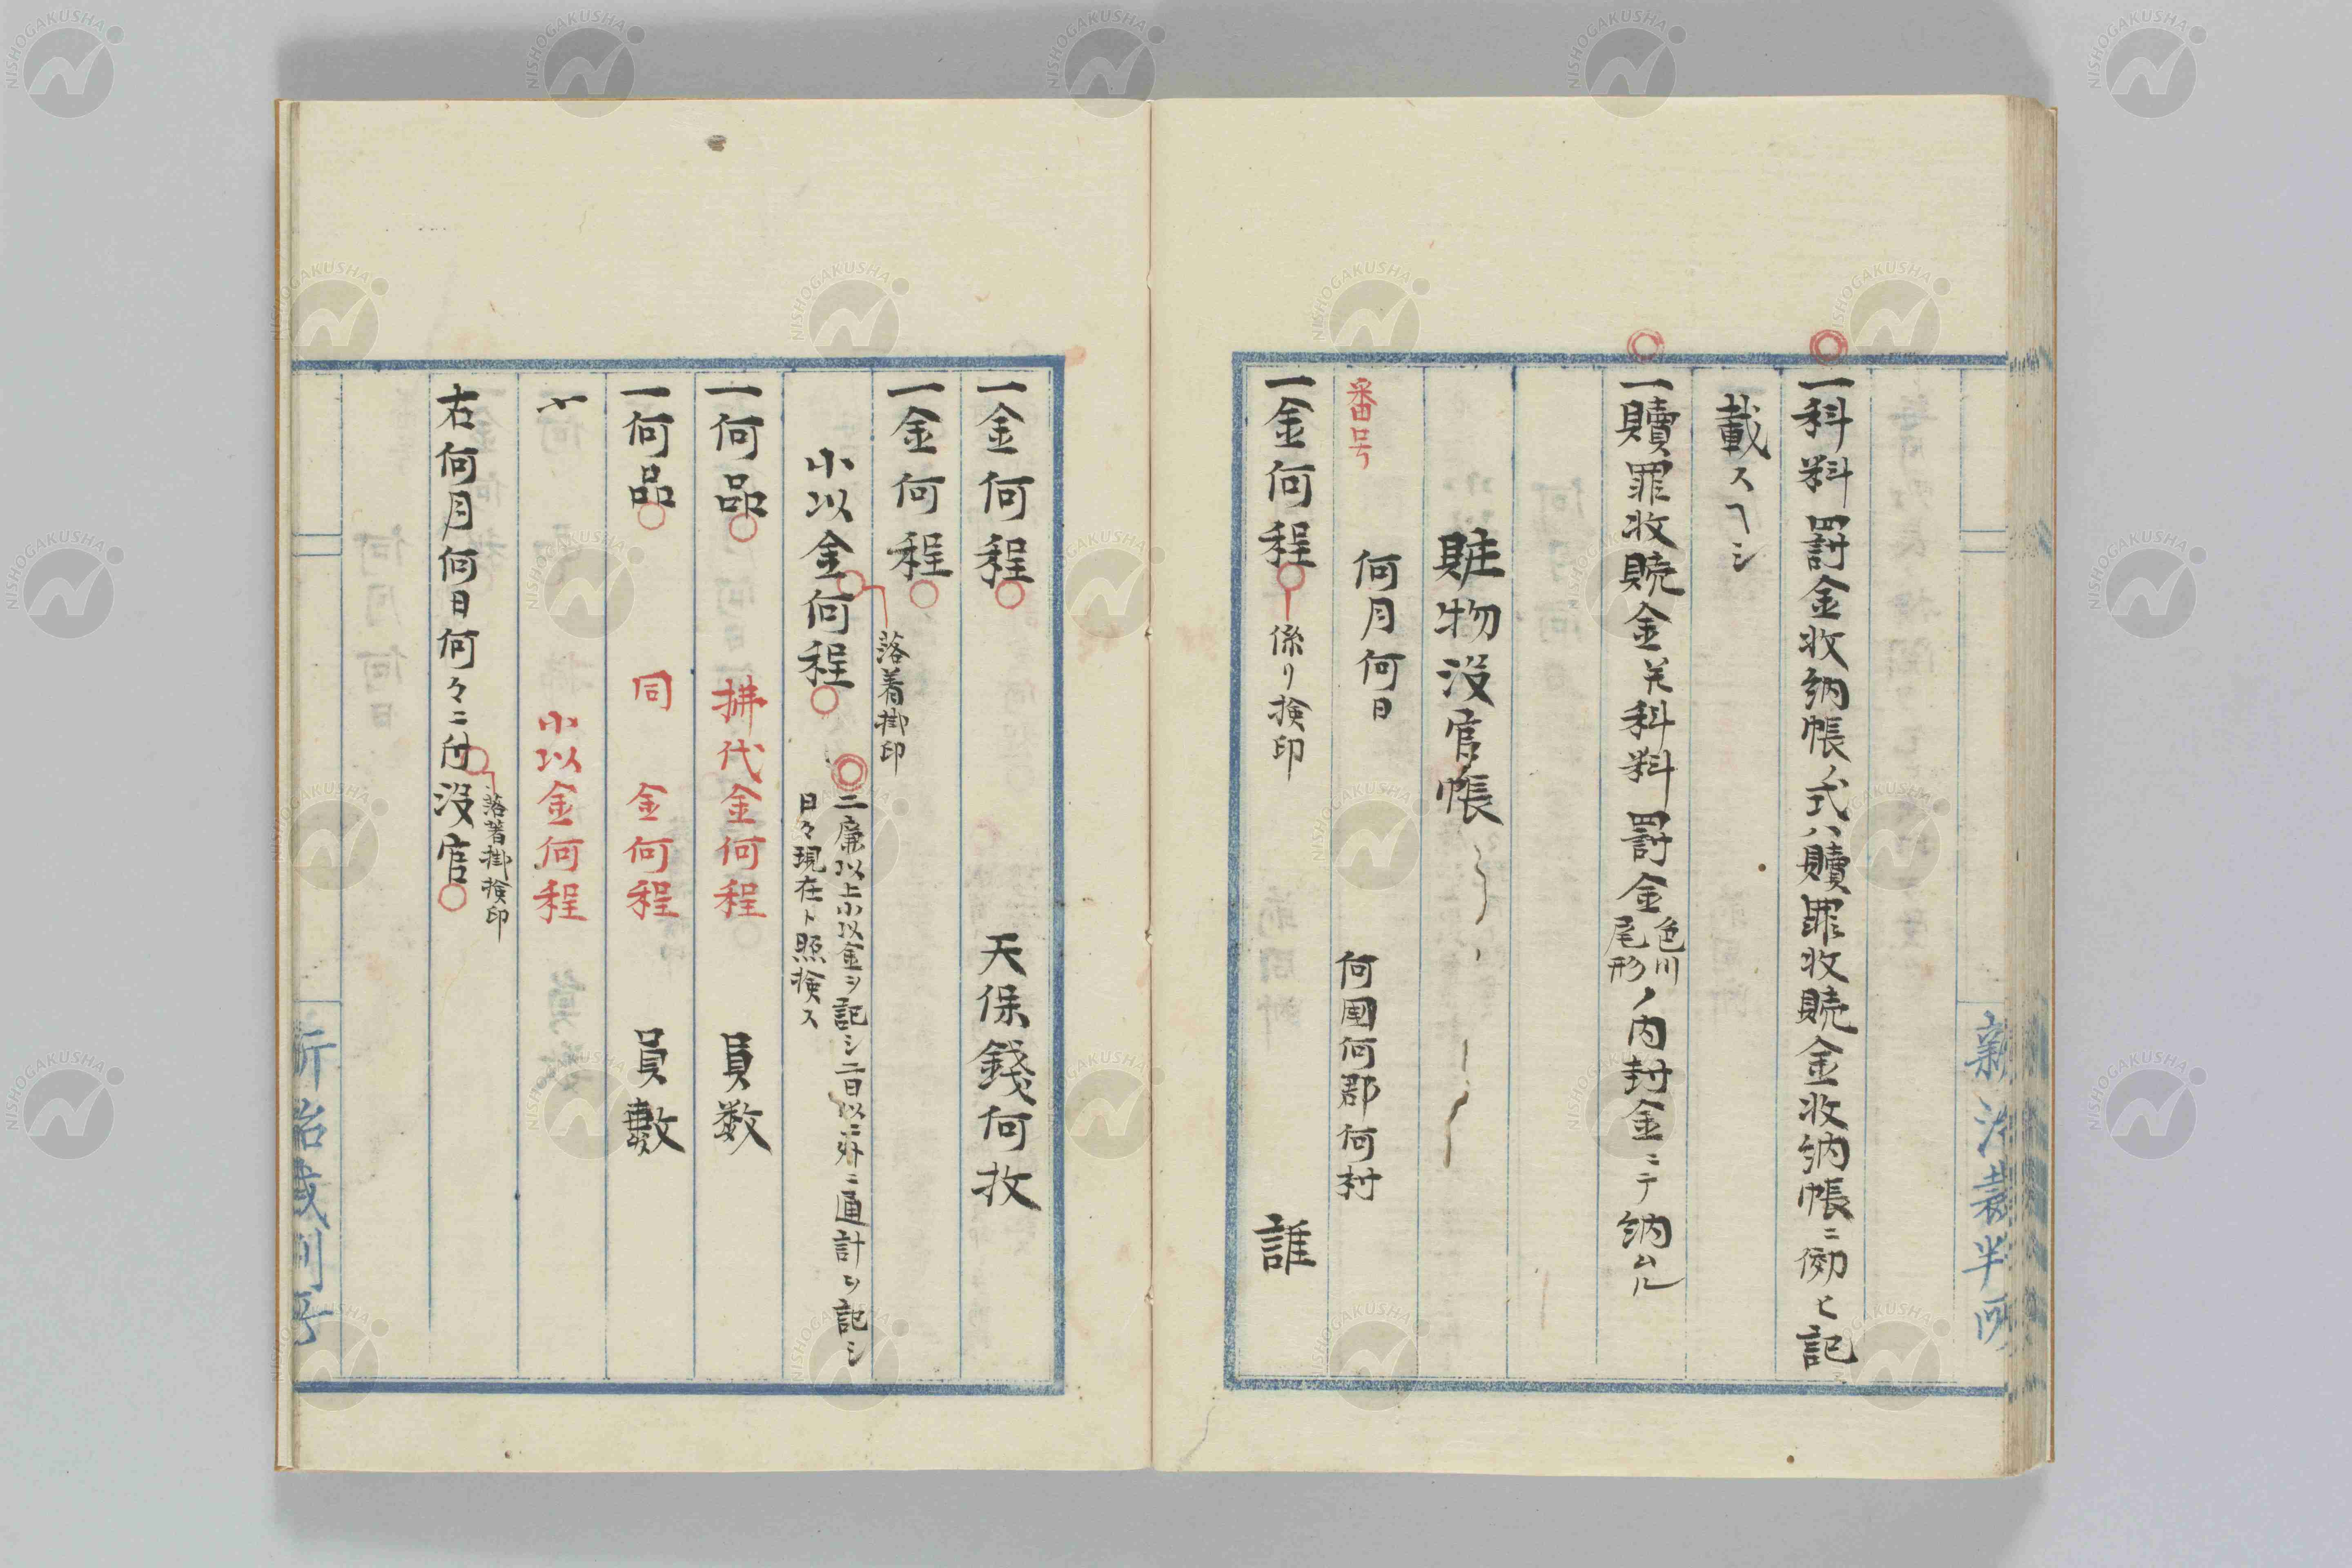 一科料罰金收納帳ノ式ハ贖罪收贖金收納帳ニ倣ヒ記
載スヘシ
一贖罪收贖金並科料罰金色川尾形ノ内封金ニテ納ムル
賍物没官帳
番号 何月何日 何国何郡何村
一金何程 係リ検印 誰
一金何程 天保錢何枚
一金何程
落着掛印
小以金何程 二廉以上小以金ヲ記シ二日以上ニ通計ヲ記シ
日々現在ト照検ス
一何品 拂代金何程 員数
一何品 同 金何程 員數
〆 小以金何程
落着掛検印
右何月何日何々ニ付没官
新治裁判所
NISHOGAKUSHA